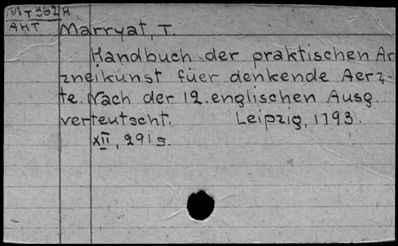 M T 362 H
AHT
Marryat, T.
Handbuch der praktischen Ar
zneikunst füer denkende Aerz-
te. Nach der 12. englischen Ausg.
verteutscht. Leipzig, 1793.
XII, 291 s.